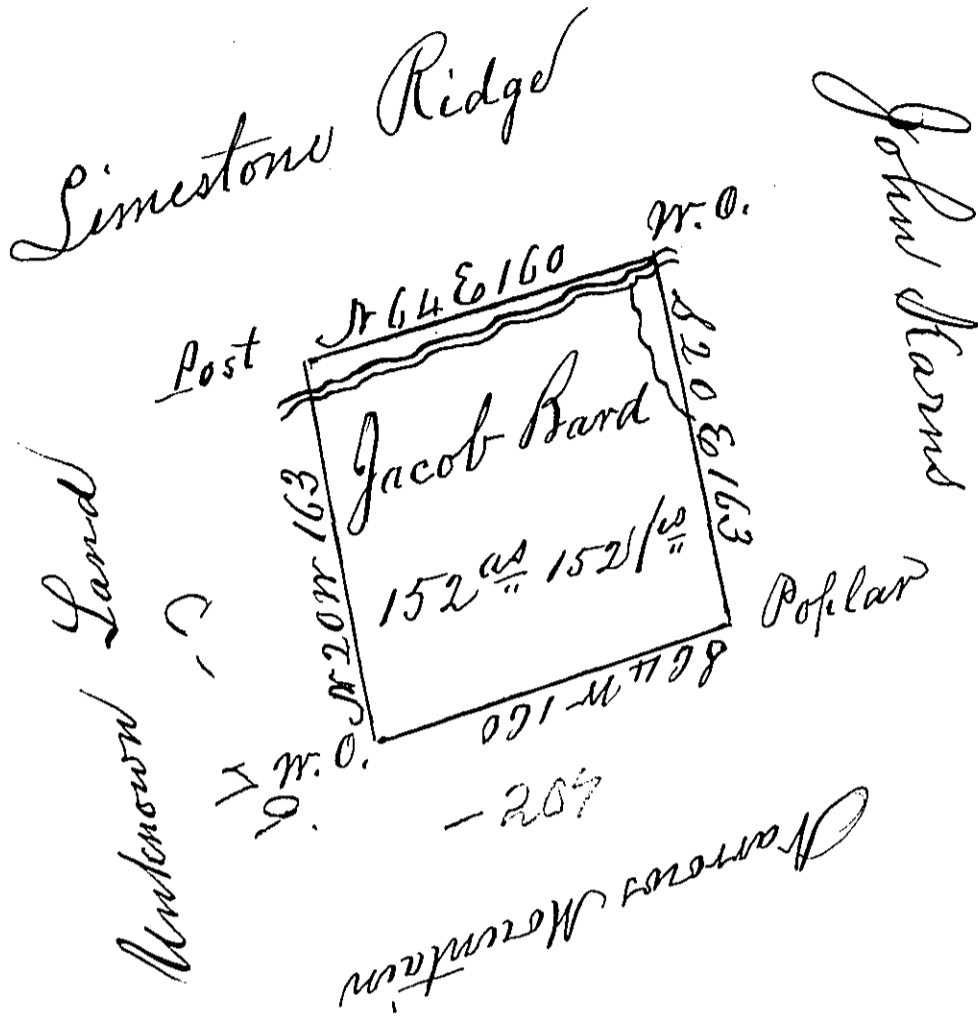 Limestone Ridge
John Karns
W. O.
N 64 E 160
Post
S 20 E 163
Jacob Bard
152 as 152 ps
N 20 W 163
Poplar
S 64 W 160
W. O.
Unknown Land
Narrows Mountain